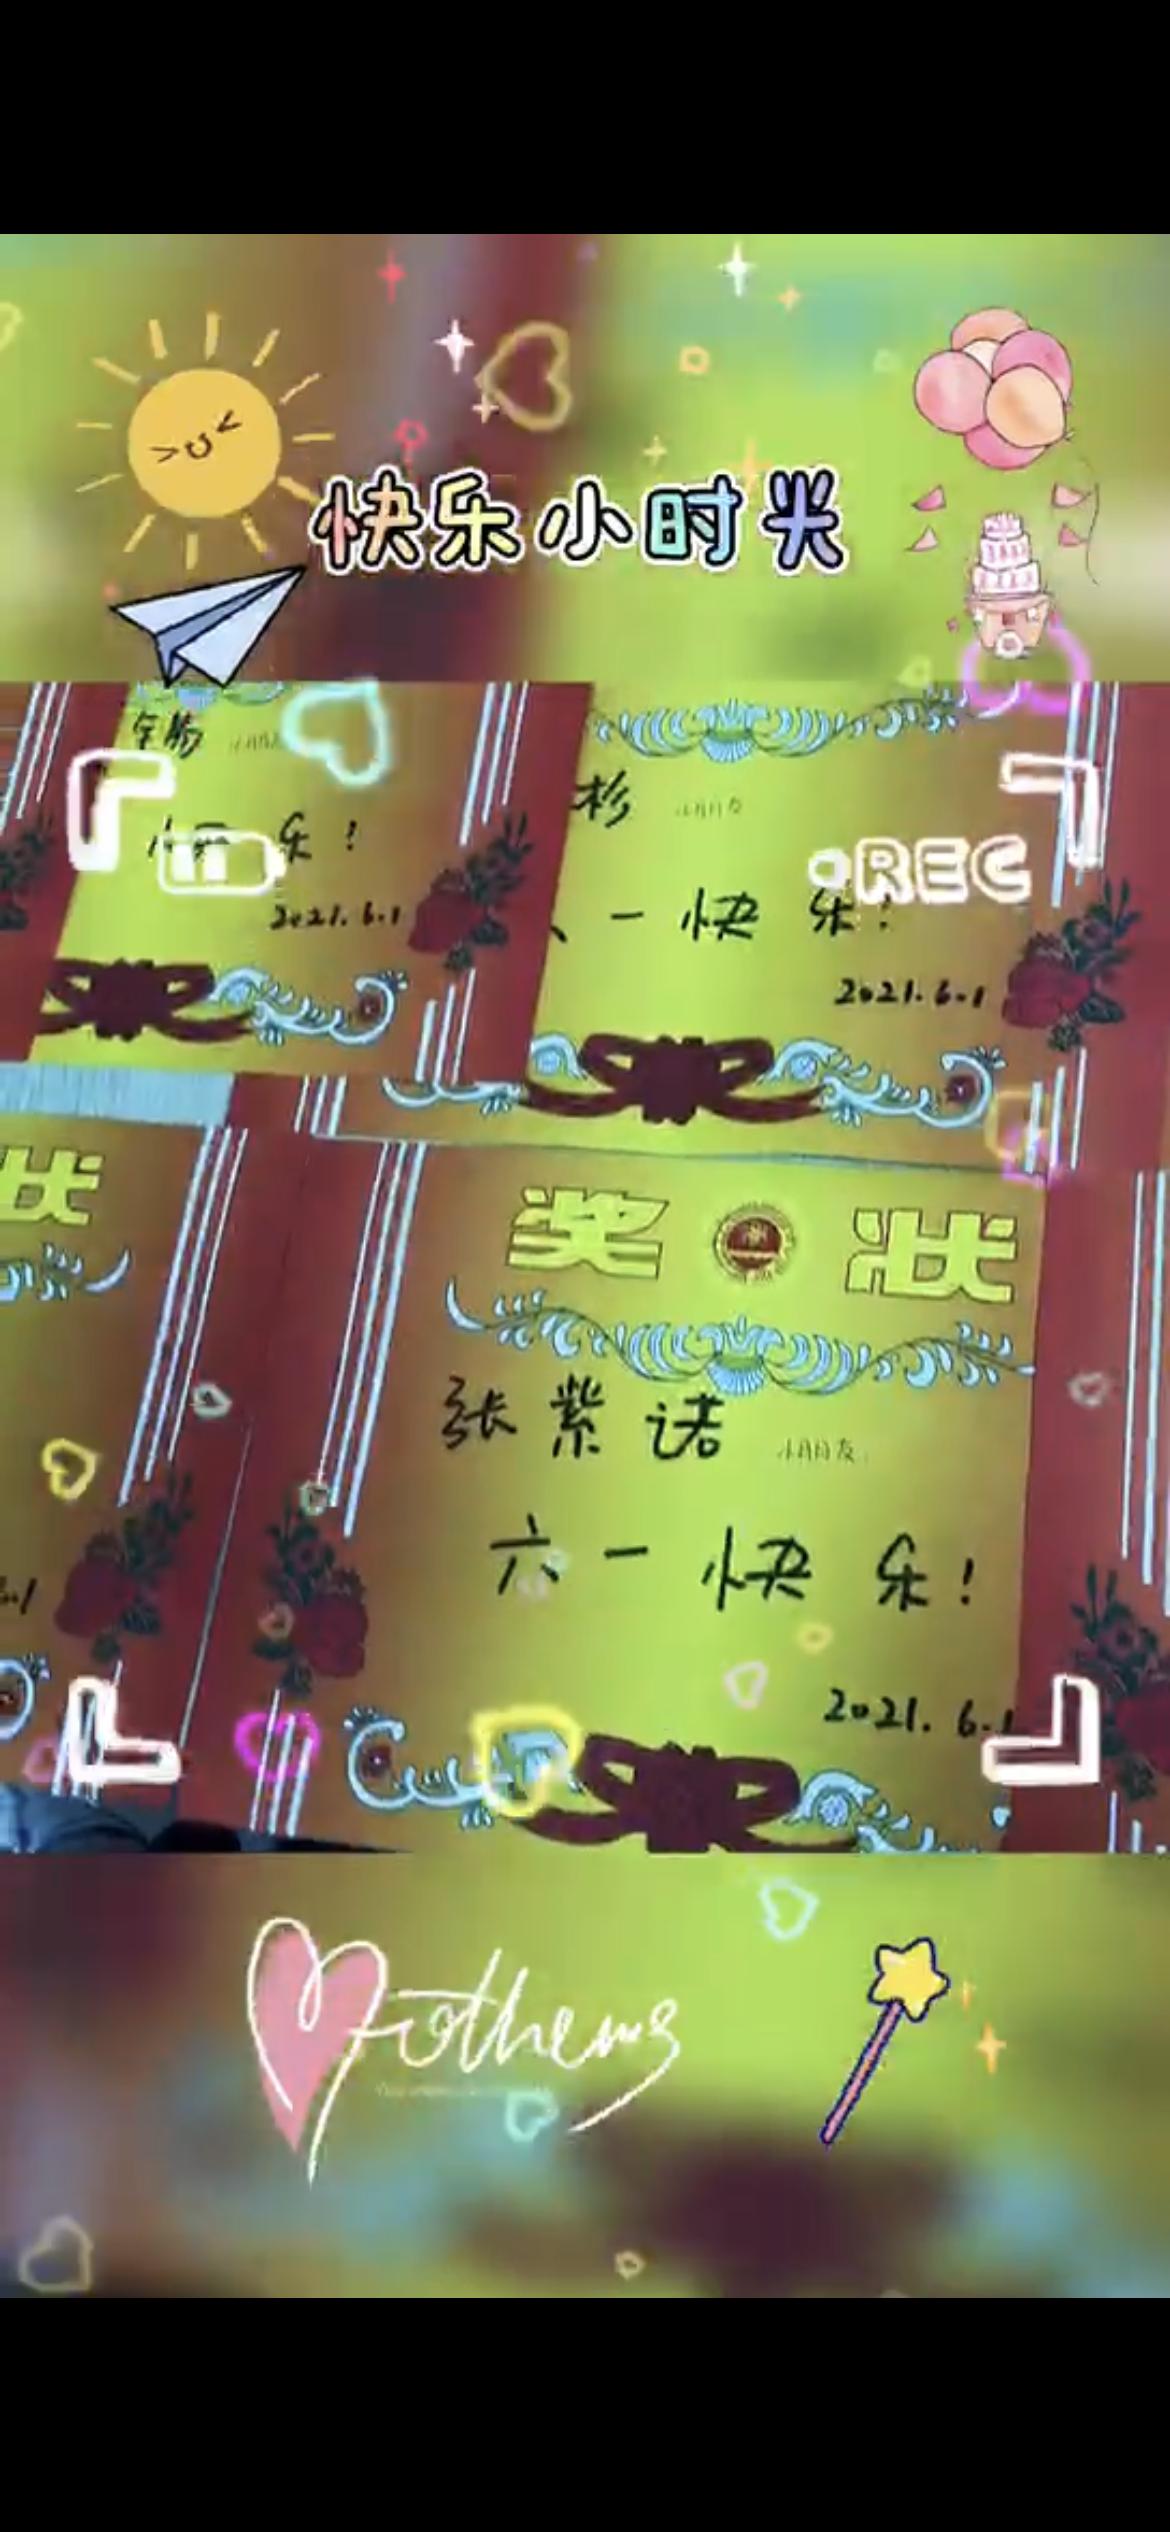 快乐小时光
杉 小朋友
快乐！
2021.6.1
一快乐！
2021.6.1
状
奖状
张紫诺 小朋友
六一快乐！
2021.6.1
REC
Mothers